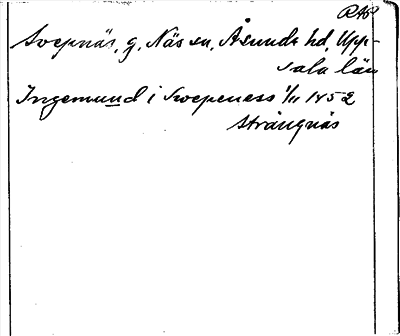 RAp
Svepnäs, g. Näs sn, Åsunda hd, Upp-
sala län
Ingemund i Swepeness 1/11 1452
Strängnäs